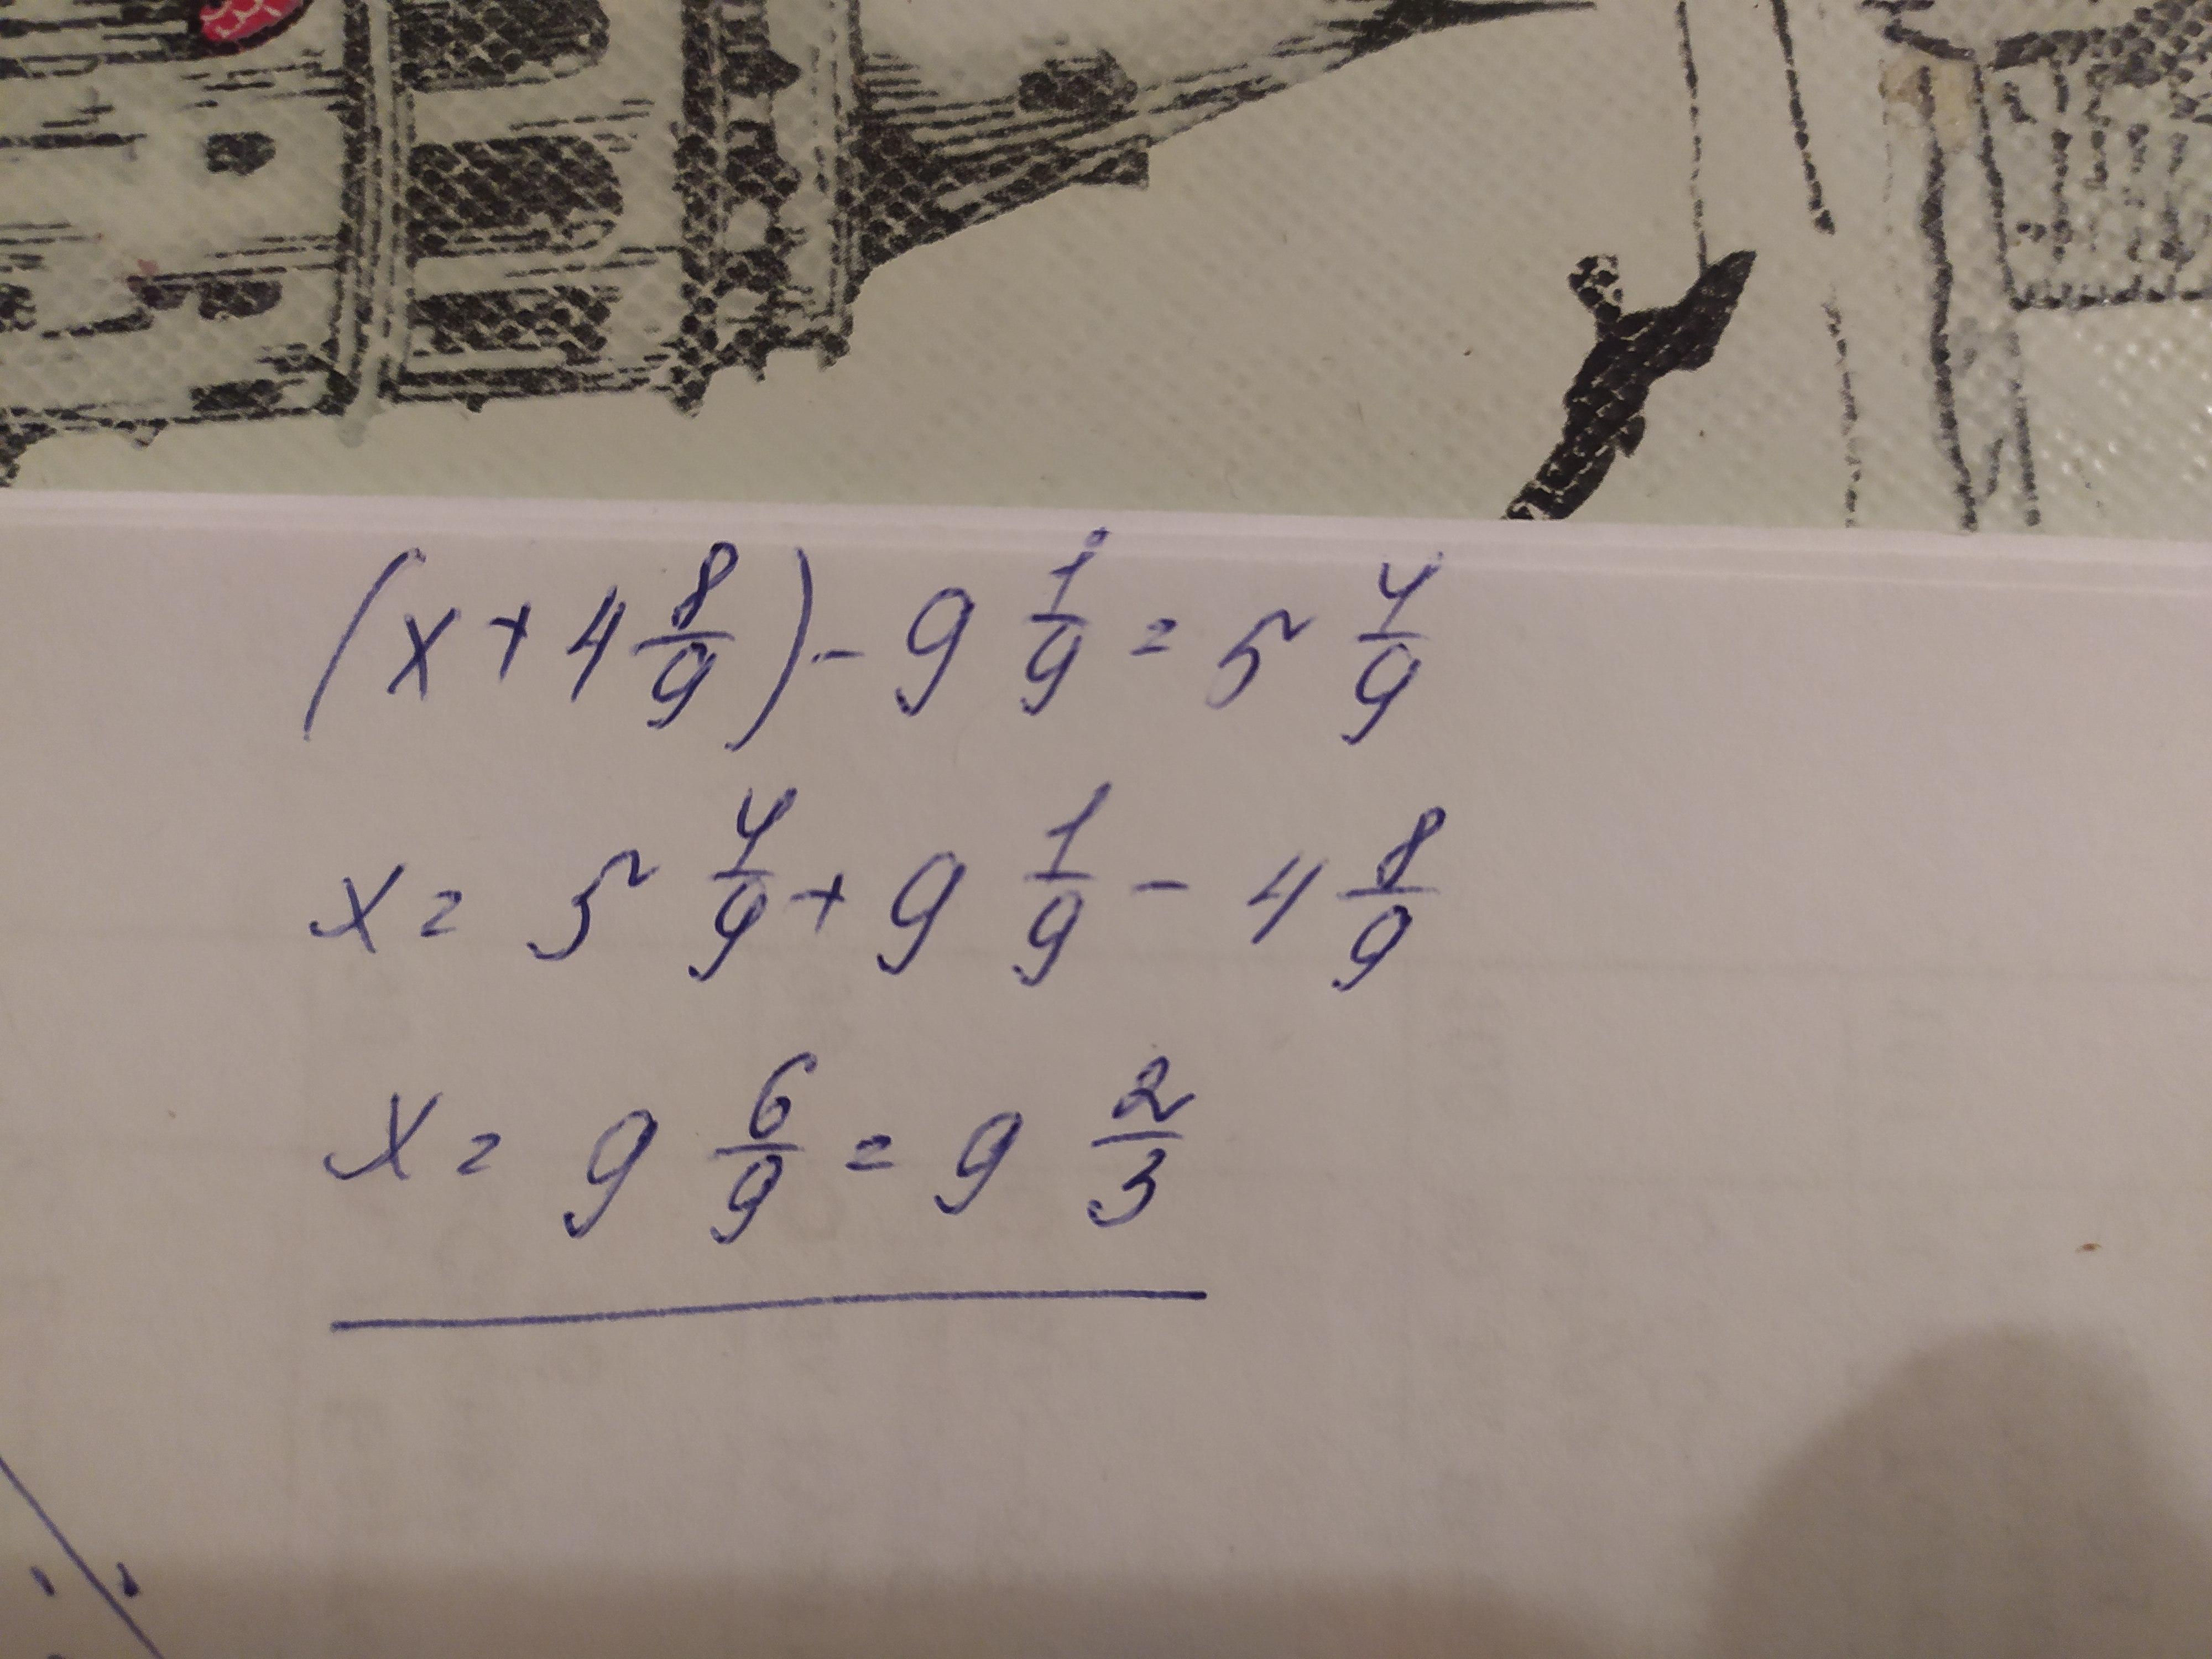 (x + 4 8/9) - 9 1/9 = 5 4/9
x = 5 4/9 + 9 1/9 - 4 8/9
x = 9 6/9 = 9 2/3